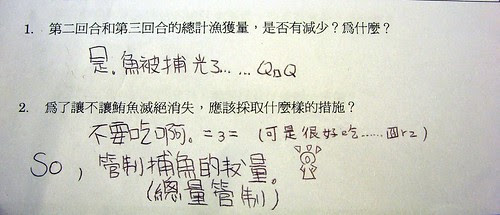 1. 第二回合和第三回合的總計漁獲量，是否有減少？為什麼？
是。魚被捕光了……QQQ
2. 為了讓不讓鮪魚滅絕消失，應該採取什麼樣的措施？
不要吃啊。=3= (可是很好吃……囧rz)
So，管制捕魚的數量。
(總量管制)